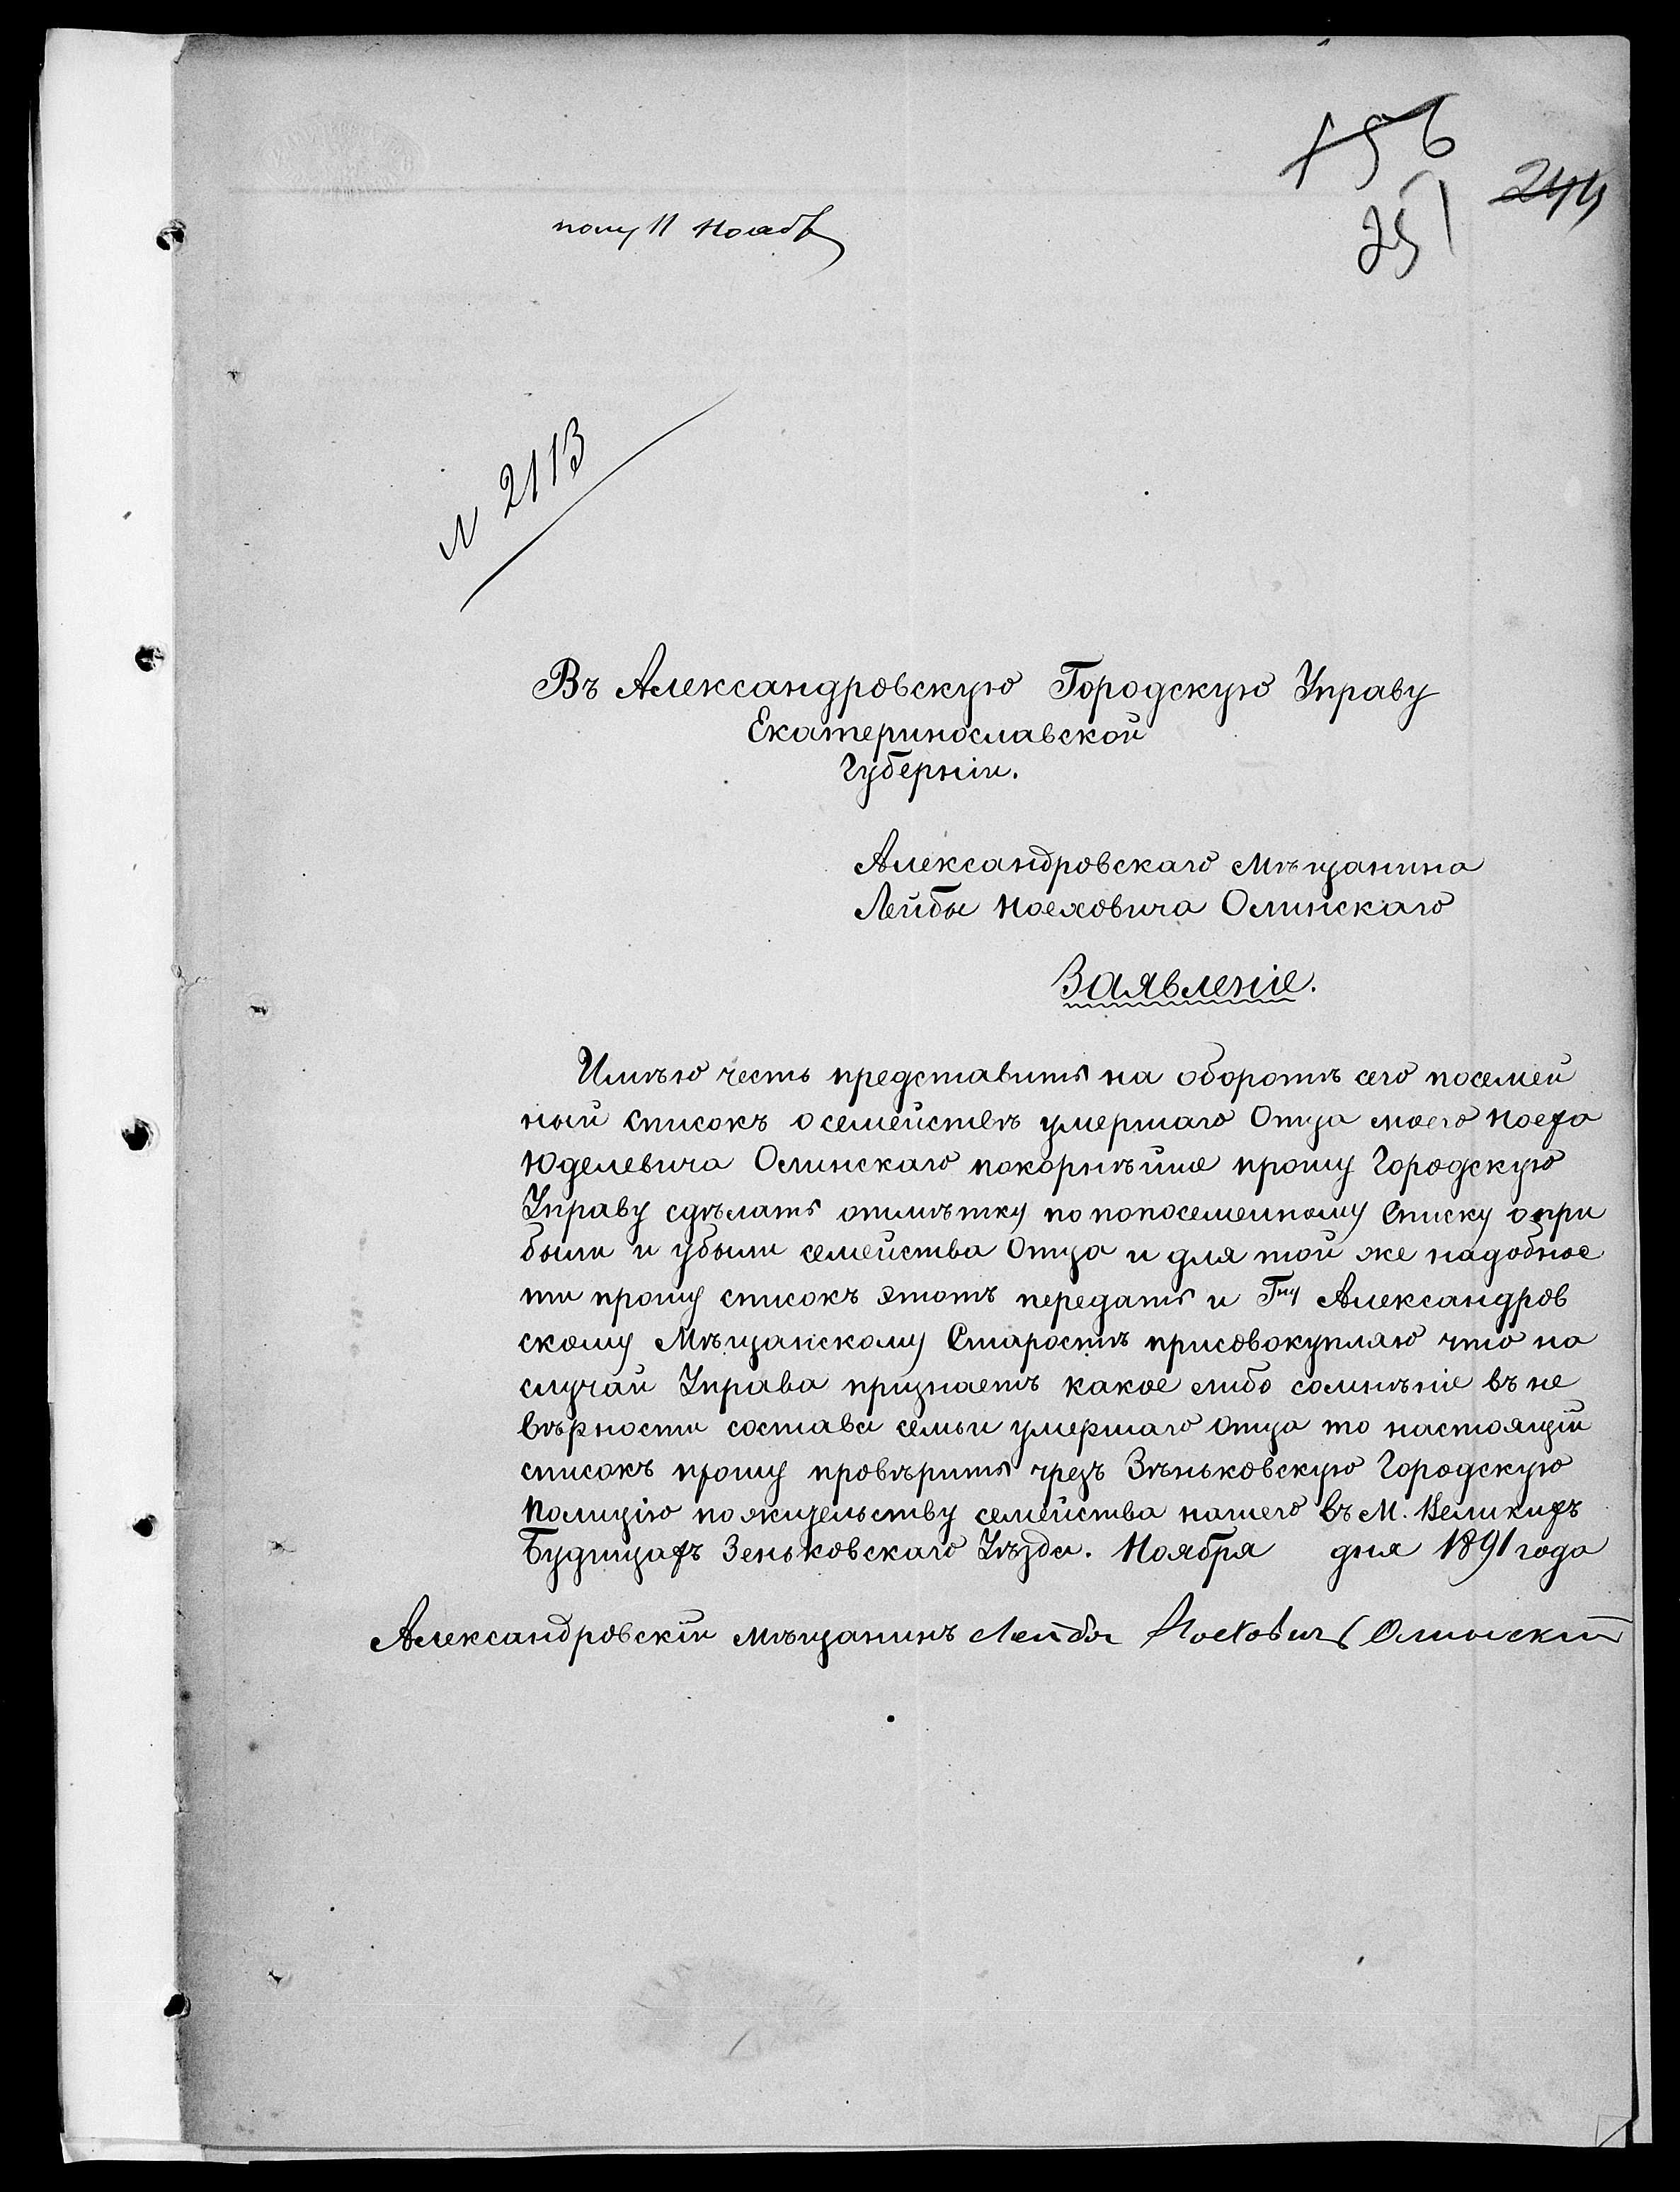 156
244
251
полу 11 Нояб
N 2113
Въ Александровскую Городскую Управу
Екатеринославской
Губерніи.
Александровскаго мѣщанина
Лейбы Ноеховича Олинскаго
Заявленіе.
Имѣю честь представить на оборотѣ сего посемей
ный списокъ о семействѣ умершаго Отца моего Ноеха
Юделевича Олинскаго покорнѣйше прошу Городскую
Управу сдѣлать отмѣтку по попосемейному Списку о при
были и убыли семейства Отца и для той же надобнос
ти прошу списокъ этотъ передать и Гну Александров
скому Мѣщанскому Старостѣ присовокупляю что на
случай Управа признаетъ какое либо сомнѣніе въ не
вѣрности состава семьи умершаго отца то настоящій
списокъ прошу провѣрить чрезъ Зѣньковскую Городскую
Полицію по жительству семейства нашего въ М. Великихъ
Будищахъ Зеньковскаго Уѣзда. Ноября дня 1891 года
Александровскій мѣщанинъ Лейба Ноеховичъ Олинскій